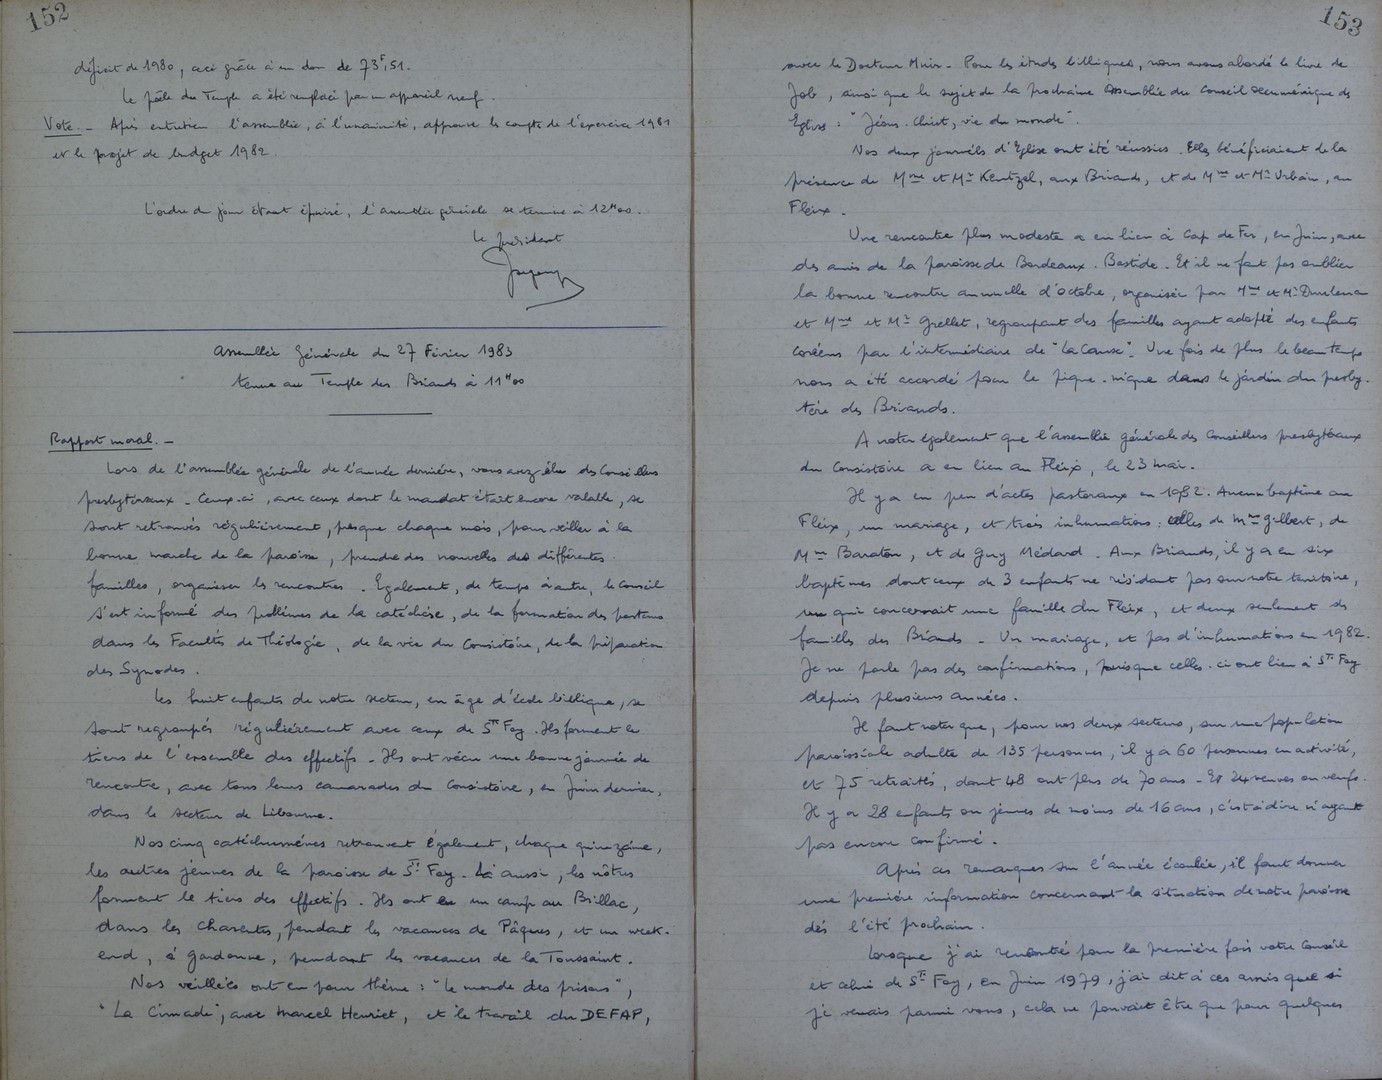 152
déficit de 1980, ceci grâce à un don de 73F,51.
Le poêle du Temple a été remplacé par un appareil neuf.
Vote. - Après entretien l'assemblée, à l'unanimité, approuve les comptes de l'exercice 1981
et le projet de budget 1982
L'ordre du jour étant épuisé, l'assemblée générale se termine à 12H00.
Le président
Assemblée Générale du 27 Février 1983
tenue au Temple des Briands à 11H00
Rapport moral. -
Lors de l'assemblée générale de l'année dernière, vous avez élu des Conseillers
presbytéraux - Ceux-ci, avec ceux dont le mandat était encore valable, se
sont retrouvés régulièrement, presque chaque mois, pour veiller à la
bonne marche de la paroisse, prendre des nouvelles des différentes
familles, organiser les rencontres. Egalement, de temps à autre, le Conseil
s'est informé des problèmes de la catéchèse, de la formation des pasteurs
dans les Facultés de Théologie, de la vie du Consistoire, de la préparation
des Synodes.
Les huit enfants de notre secteur, en âge d'école biblique, se
sont regroupés régulièrement avec ceux de STE Foy. Ils forment le
tiers de l'ensemble des effectifs - Ils ont vécu une bonne journée de
rencontre, avec tous leurs camarades du Consistoire, en Juin dernier,
dans le secteur de Libourne.
Nos cinq catéchumènes retrouvent également, chaque quinzaine,
les autres jeunes de la paroisse de STE Foy. Là aussi, les nôtres
forment le tiers des effectifs. Ils ont eu un camp au Brillac,
dans les Charentes, pendant les vacances de Pâques, et un week-
end, à Gardonne, pendant les vacances de la Toussaint.
Nos veillées ont eu pour thème : "le monde des prisons",
"La Cimade", avec Marcel Henriet, et le travail du DEFAP,
153
avec le Docteur Muir - Pour les études bibliques, nous avons abordé le livre de
Job, ainsi que le sujet de la prochaine Assemblée du Conseil Oecuménique des
Eglises : "Jésus-Christ, vie du monde".
Nos deux journées d'Eglise ont été réussies. Elles bénéficiaient de la
présence de Mme et Mr Kentzel, aux Briands, et de Mme et Mr Urbain, au
Fleix.
Une rencontre plus modeste a eu lieu à Cap de Fer, en Juin, avec
des amis de la paroisse de Bordeaux-Bastide. Et il ne faut pas oublier
la bonne rencontre annuelle d'octobre, organisée par Mme et Mr
et Mme et Mr Grellet, regroupant des familles ayant adopté des enfants
coréens par l'intermédiaire de "La Cause". Une fois de plus le beau temps
nous a été accordé pour le pique-nique dans le jardin du presby-
tère des Briands.
A noter également que l'assemblée générale des Conseillers presbytéraux
du Consistoire a eu lieu au Fleix, le 23 mai.
Il y a eu peu d'actes pastoraux en 1982. Aucun baptême au
Fleix, un mariage, et trois inhumations : celles de Mme Gilbert, de
Mme Baraton, et de Guy Médard. Aux Briands, il y a eu six
baptêmes dont ceux de 3 enfants ne résidant pas sur notre territoire,
un qui concernait une famille du Fleix, et deux seulement des
familles des Briands - Un mariage, et pas d'inhumations en 1982.
Je ne parle pas des confirmations, puisque celles-ci ont lieu à STE Foy
depuis plusieurs années.
Il faut noter que, pour nos deux secteurs, sur une population
paroissiale adulte de 135 personnes, il y a 60 personnes en activité,
et 75 retraités, dont 48 ont plus de 70 ans - Et 24 veuves ou veufs.
Il y a 28 enfants ou jeunes de moins de 16 ans, c'est-à-dire n'ayant
pas encore confirmé.
Après ces remarques sur l'année écoulée, il faut donner
une première information concernant la situation de notre paroisse
dès l'été prochain.
Lorsque j'ai rencontré pour la première fois votre Conseil
et celui de STE Foy, en Juin 1979, j'ai dit à ces amis que si
je venais parmi vous, cela ne pouvait être que pour quelques